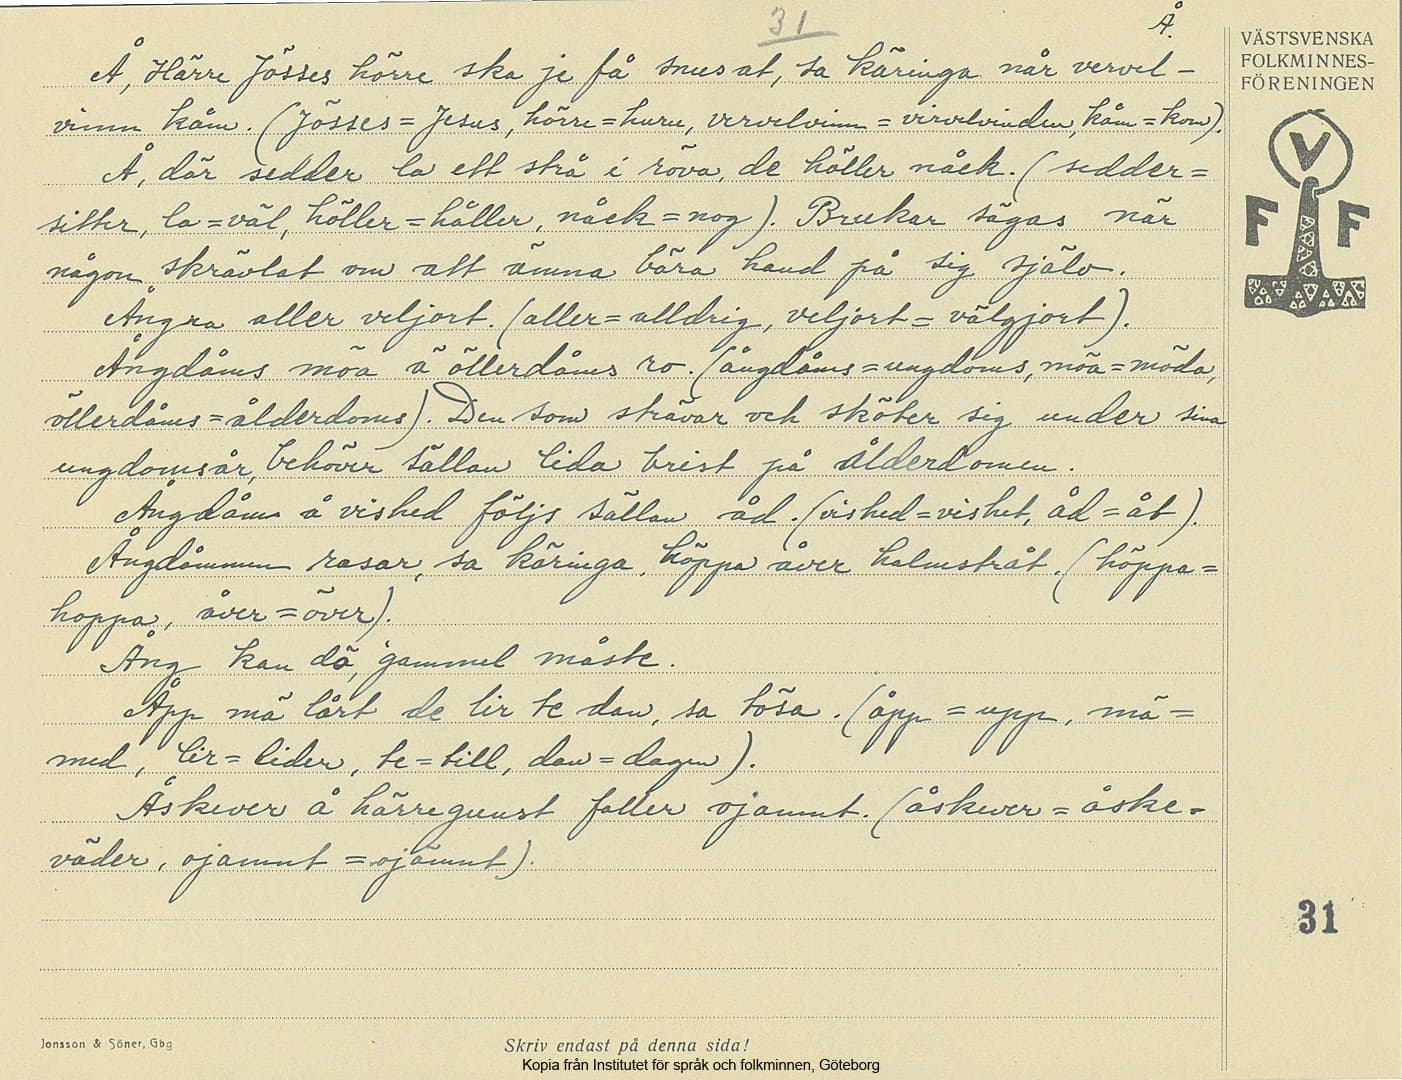 31
Å.
Å, Härre Jösses hörre ska je få snus at, sa käringa når vervel-
vinn kåm. (Jösses = Jesus, hörre = huru, vervelvinn = virvelvinden, kåm = kom).
Å, där sedder la ett strå i röva, de höller nåck. (sedder =
sitter, la = väl, höller = håller, nåck = nog). Brukar sägas när
någon skrävlat om att ämna bära hand på sig själv.
Ångra aller veljort. (aller = alldrig, veljort = välgjort).
Ångdåms möa ä öllerdåms ro. (ångdåms = ungdoms, möa = möda,
öllerdåms = ålderdoms). Den som strävar och sköter sig under sina
ungdomsår, behöver sällan lida brist på ålderdomen.
Ångdåm å vished följs sällan åd. (vished = vishet, åd = åt).
Ångdåmmen rasar, sa käringa, höppa åver halmstråt. (höppa =
hoppa, åver = över).
Ång kan dö, gammel måste.
Åpp mä lårt de lir te dan, sa tösa. (åpp = upp, mä =
med, lir = lider, te = till, dan = dagen).
Åskever å härregunst faller ojamnt. (åskever = åske-
väder, ojamnt = ojämnt).
VÄSTSVENSKA
FOLKMINNES-
FÖRENINGEN
V
F F
31
Jonsson & Söner, Gbg
Skriv endast på denna sida!
Kopia från Institutet för språk och folkminnen, Göteborg